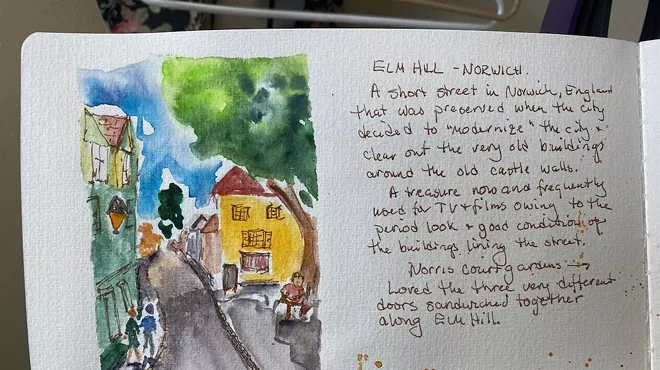 ELM HILL - NORWICH.
A short street in Norwich, England
that was preserved when the city
decided to "modernize" the city &
clear out the very old buildings
around the old castle walls.
A treasure now and frequently
used for TV & films owing to the
period look & good condition of
the buildings lining the street.
Norris Court gardens →
Loved the three very different
doors sandwiched together
along Elm Hill.